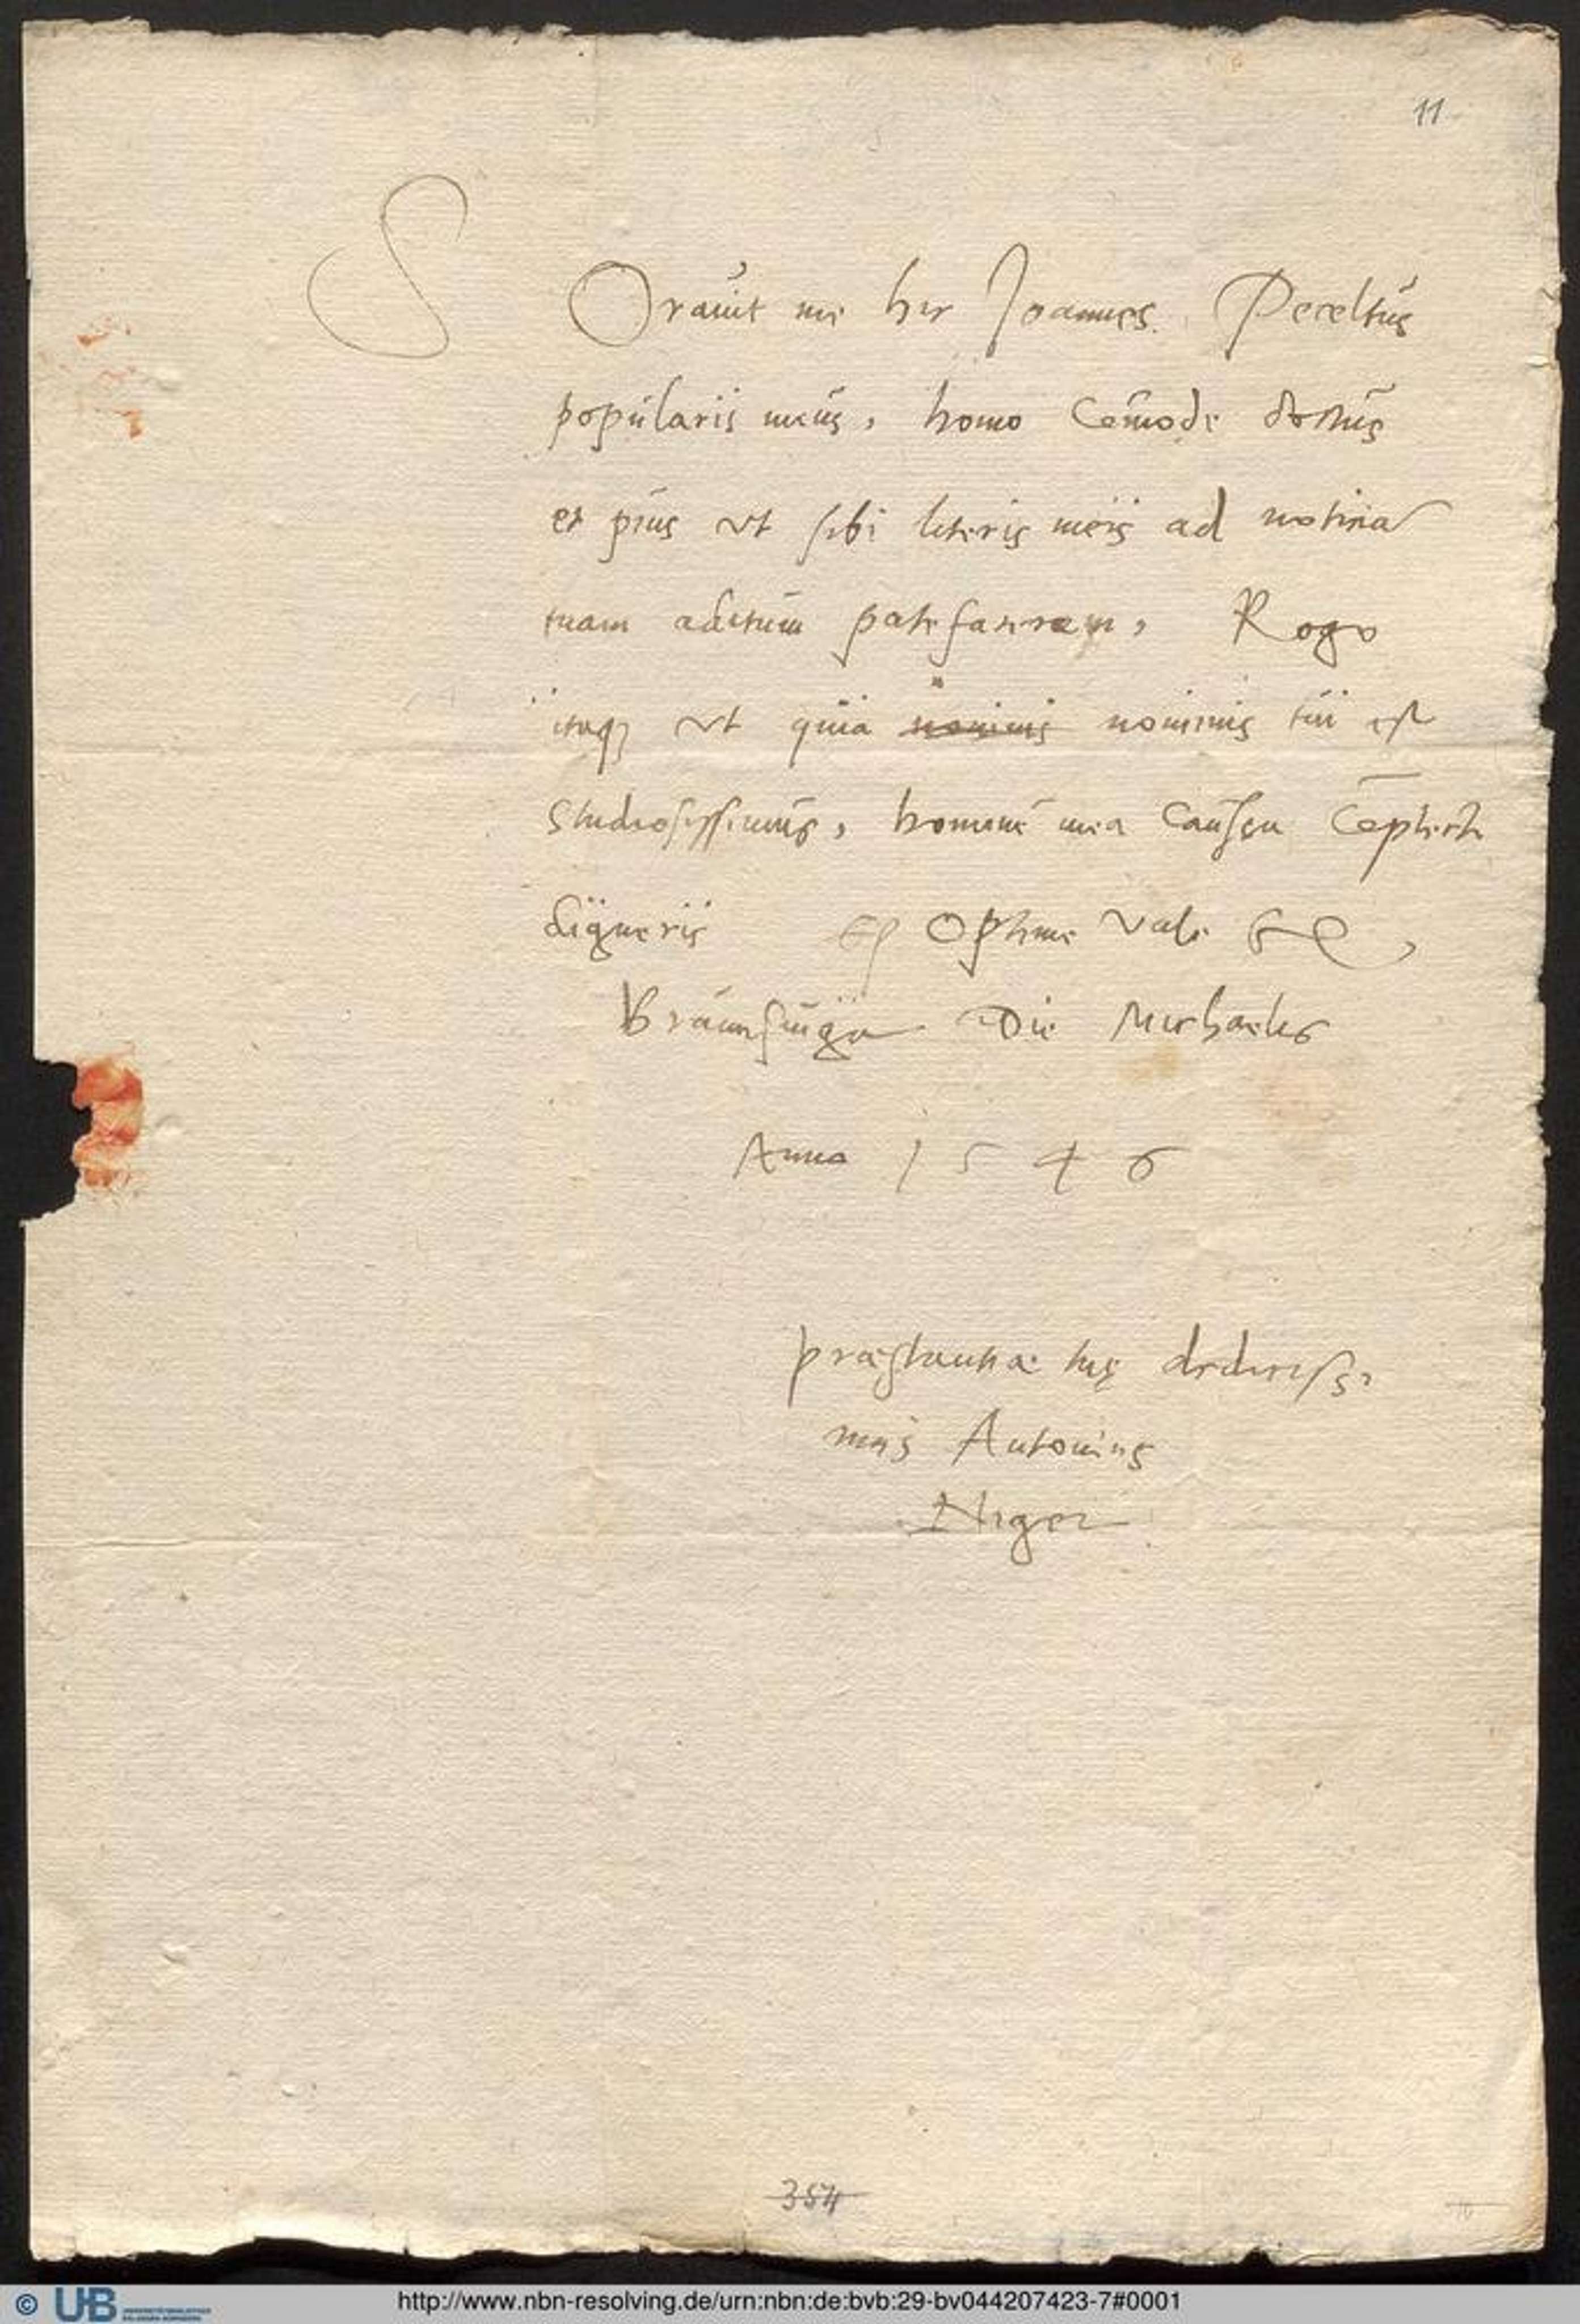 11
S Orauit me hic Joannes Peceltus
popularis meus, homo com̄ode doctus
et pius vt sibi literis meis ad notitiā
tuam aditum patefacerem, Rogo
itaqꝫ vt quia nominis nominis tui est
studiosissimus, hominē mea caussa cōplecti
digneris Optime vale
Die Michaelis
Anno 1546
præstantiæ tuę dedictiss.
mus Antonius
Niger
354
© UB http://www.nbn-resolving.de/urn:nbn:de:bvb:29-bv044207423-7#0001